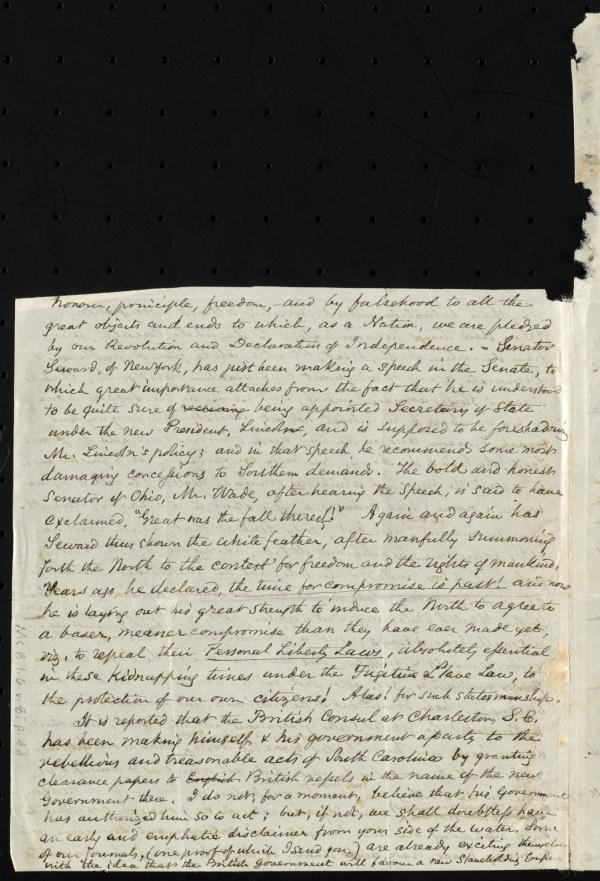 honour, principle, freedom,- and by falsehood to all the
great objects and ends to which, as a Nation, we are pledged
by our Revolution and Declaration of Independence. - Senator
Seward, of New York, has just been making a speech in the Senate, to
which great importance attaches from the fact that he is understood
to be quite sure of receiving being appointed Secretary of State
under the new President, Lincoln, and is supposed to be foreshadowing
Mr. Lincoln's policy; and in that speech, he recommends some most
damaging concessions to Southern demands. The bold and honest
Senator of Ohio, Mr. Wade, after hearing the speech, is said to have
exclaimed, "Great was the fall thereof!" Again and again has
Seward thus shown the white feather, after manfully summoning
forth the North to the contest for freedom and the rights of mankind.
Years ago, he declared, the time for compromise is past! and now
he is laying out his great strength to induce the North to agree to
a baser, meaner compromise than they have ever made yet,
viz. to repeal their Personal Liberty Laws, absolutely essential
in these kidnapping times under the Fugitive Slave Law, to
the protection of our own citizens! Alas! for such statesmanship.
It is reported that the British Consul at Charleston, S.C.
has been making himself & his government a party to the
rebellious and treasonable acts of South Carolina by granting
clearance papers to English British vessels in the name of the new
Government there. I do not, for a moment, believe that his Government
has authorized him so to act; but, if not, we shall doubtless have
an early and emphatic disclaimer from your side of the water. Some
of our journals, (one proof of which I send you,) are already exciting themselves
with the idea that the British Government will favour a new Slaveholding Empire